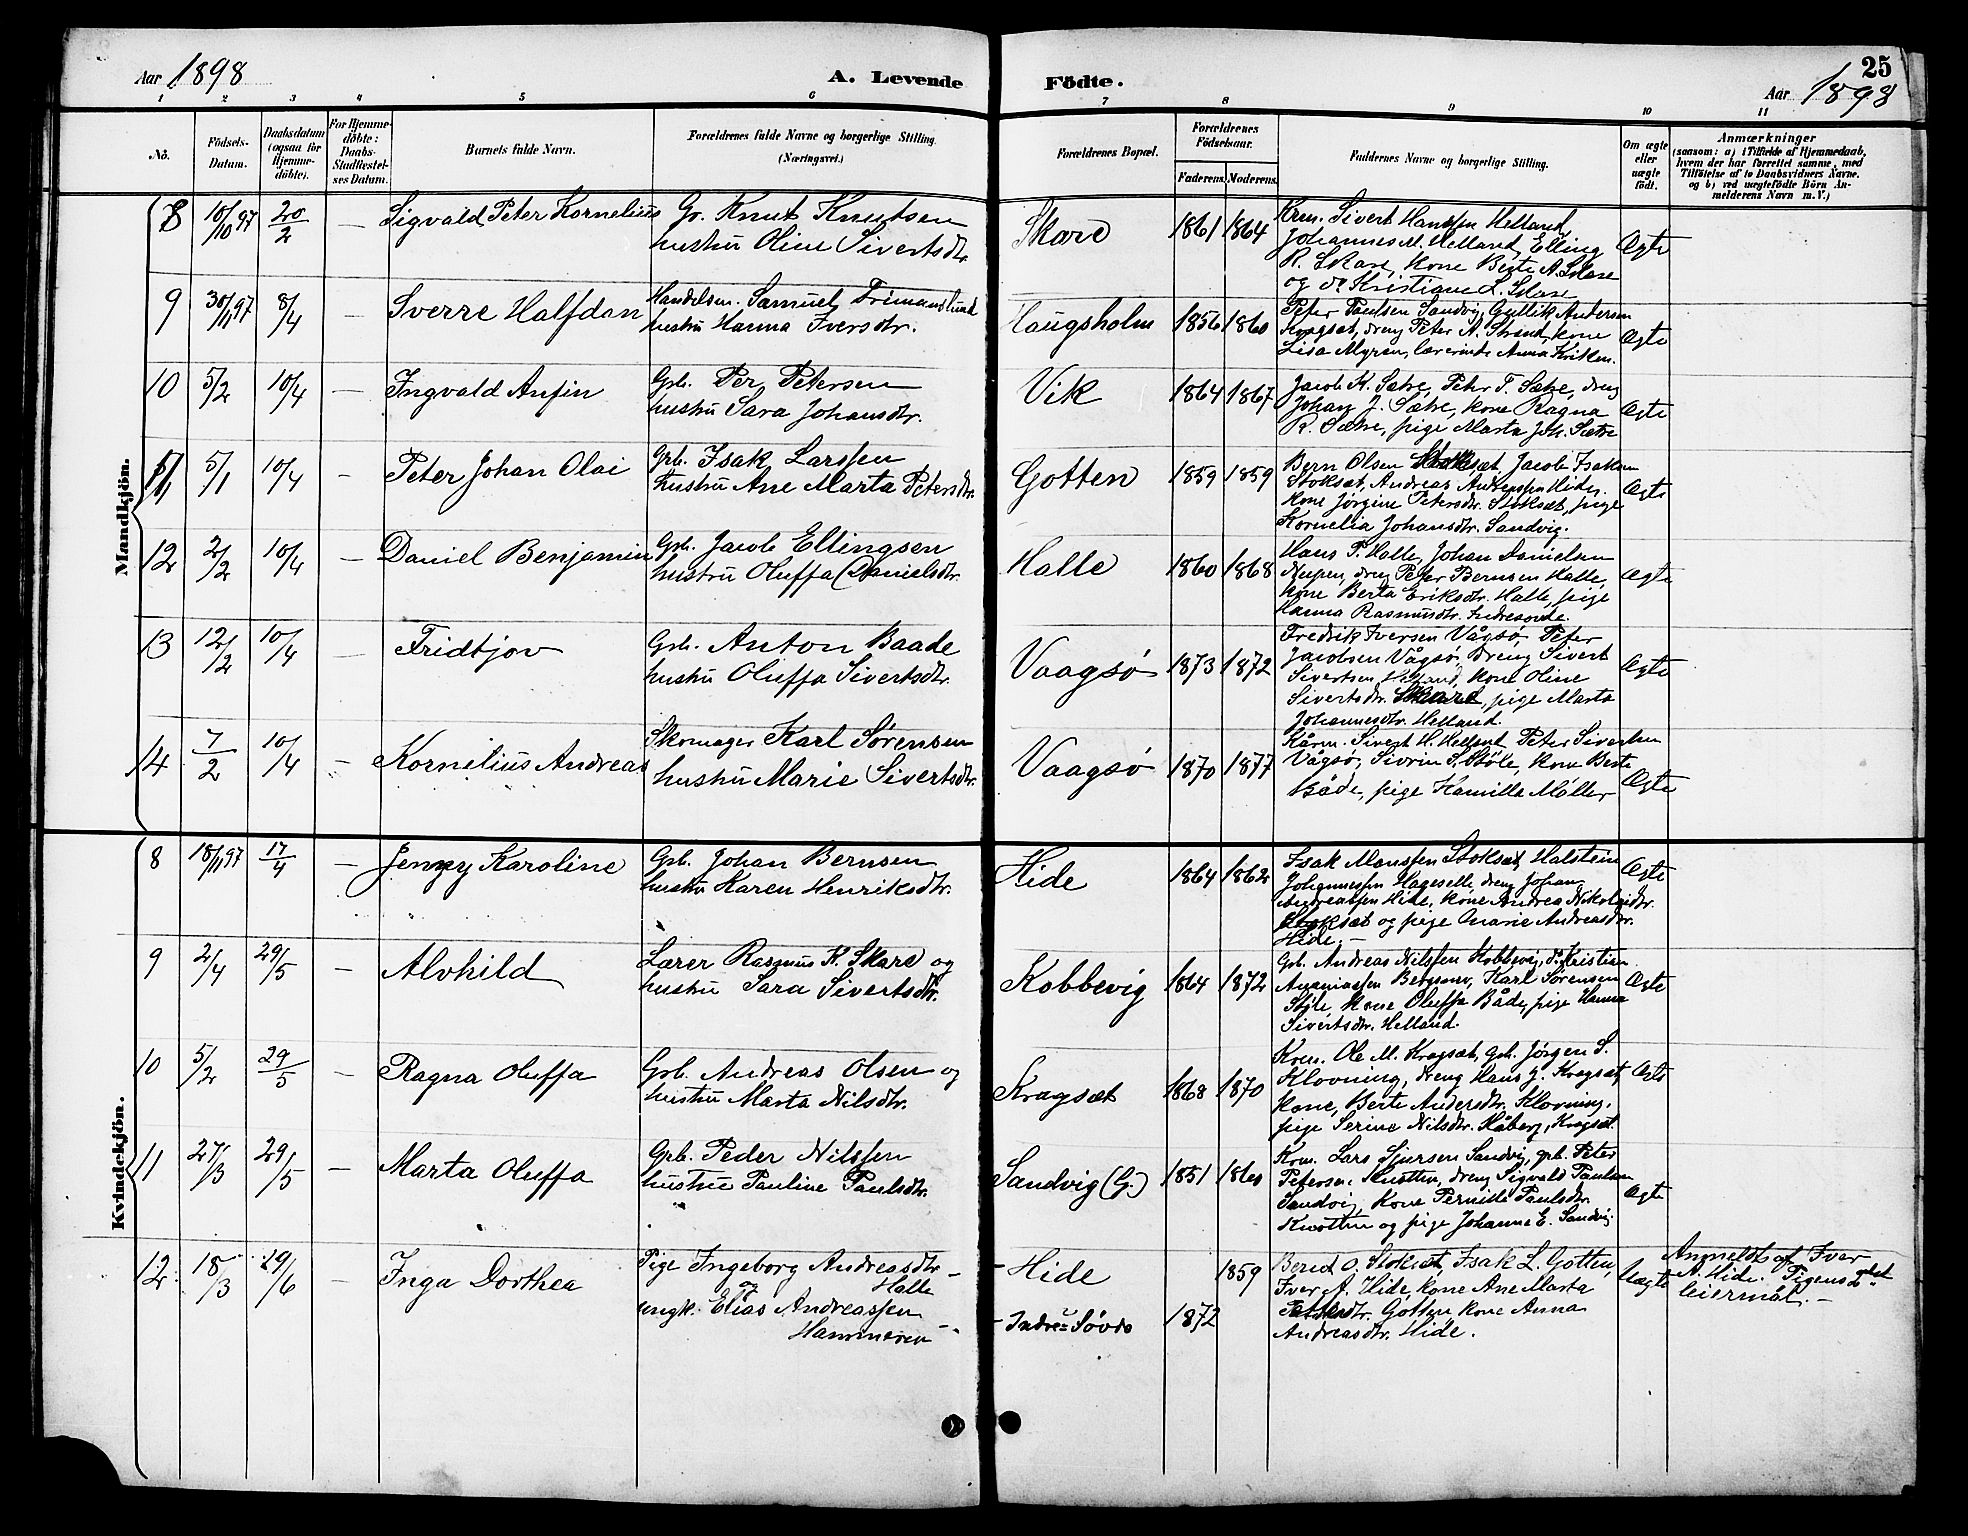 Aar 1898
A. Levende
Födte.
25
Aar 1898
1 2 3 4 5 6 7 8 9 10 11
No.
Födsels-
Datum.
Daabsdatum
(ogsaa for
Hjemme-
döbte).
For Hjemme-
döbte:
Daabs-
Stadfæstel-
ses Datum.
Barnets fulde Navn.
Forældrenes fulde Navne og borgerlige Stilling.
(Næringsvei.)
Forældrenes Bopæl.
Forældrenes
Födselsaar.
Faderens.
Moderens.
Faddernes Navne og borgerlige Stilling.
Om ægte
eller
uægte
født.
Anmærkninger
(saasom: a) i Tilfælde af Hjemmedaab,
hvem der har forrettet samme, med
Tilföielse af to Daabsvidners Navne.
og b) ved uægtefödte Börn An-
melderens Navn m. V.)
Mandkjön.
8 10/10 97 20/2 — Sigvald Peter Kornelius
Gr. Knut Knutsen
hustru Oline Sivertsdtr.
Skare 1861 1864
Krm. Sivert Hanssen Helland,
Johannes M. Helland, Elling
R. Skare, kone Berte A. Skare
og do Kristiane L. Skare
Ægte
9 30/11 97 8/4 — Sverre Halfdan
Handelsm. Samuel Frimandslund
hustru Hanna Iversdtr.
Haugsholm 1856 1860
Peter Paulsen Sandvig, Gullik Andersen
Kragsæt, dreng Peter A. Strand, kone
Lisa Myren, lærerinde Anna Eriksen.
Ægte
10 5/2 10/4 — Ingvald Anfin
Grb. Per Petersen
hustru Sara Johansdtr.
Vik 1864 1867
Jacob K. Sætre, Peter T. Sætre, dreng
Johan J. Sætre, kone Ragna
R. Sætre, pige Marta Joh. Sætre
Ægte
11 5/1 10/4 — Peter Johan Olai
Grb. Isak Larssen
hustru Ane Marta Petersdtr.
Gotten 1859 1859
Bern Olsen Stoksæt, Jacob Isaksen
Stoksæt, Andreas Andreassen Hide.
kone Jørgine Petersdtr. Stoksæt, pige
Kornelia Johansdtr. Sandvig.
Ægte
12 2/2 10/4 — Daniel Benjamin
Grb. Jacob Ellingsen
hustru Oluffa Danielsdtr.
Halle 1860 1868
Hans P. Halle, Johan Danielsen
Neepen, dreng Peter Bernsen Halle,
kone Berta Eriksdtr. Halle, pige
Hanna Rasmusdtr.
Ægte
13 12/2 10/4 — Fridtjov
Grb. Anton Baade
hustru Oluffa Sivertsdtr.
Vaagsø 1873 1872
Fredrik Iversen Vågsø, Peter
Jacobsen Vågsø, dreng Sivert
Sivertsen Helland, kone Oline
Sivertsdtr. Skare, pige Marta
Johannesdtr. Helland.
Ægte
14 7/2 10/4 — Kornelius Andreas
Skomager Karl Sørensen
hustru Marie Sivertsdtr.
Vaagsø 1870 1877
Kårm. Sivert H. Helland, Peter Sivertsen
Vågsø, Sivrin S. Støle, kone Berte
Både, pige Hamilla Møller
Ægte
Kvindekjön.
8 18/11 97 17/4 — Jenny Karoline
Grb. Johan Bernsen
hustru Karen Henriksdtr.
Hide 1864 1862
Isak Monssen Stoksæt, Halstein
Johannessen Hageselle, dreng Johan
Andreassen Hide, kone Andrea Nikolaidtr.
Stoksæt og pige Marie Andreasdtr.
Hide. —
Ægte
9 2/4 29/5 — Alvhild
Lærer Rasmus K. Skare og
hustru Sara Sivertsdtr.
Kobbevig 1864 1872
Grb. Andreas Nilssen Kobbevig, do Kristian
Bergsnev, Karl Sørensen
Støle, kone Oluffa Både, pige Hanna
Sivertsdtr. Helland.
Ægte
10 5/2 29/5 — Ragna Oluffa
Grb. Andreas Olsen og
hustru Marta Nilsdtr.
Kragsæt 1868 1870
Krm. Ole M. Kragsæt, Grb. Jørgen S.
Klovning, dreng Hans J. Kragsæt,
kone, Berte Andersdtr. Klovning,
pige Serine Nilsdtr. Håberg, Kragsæt.
Ægte
11 27/3 29/5 — Marta Oluffa
Grb. Peder Nilssen
hustru Pauline Paulsdtr.
Sandvig (G.) 1851 1860
Krm. Lars Sjursen Sandvig, grb. Peter
Petersen Knotten, dreng Sigvald Paulsen
Sandvig, kone Pernille Paulsdtr.
Knotten og pige Johanne E. Sandvig.
Ægte
12. 18/3 29/6 — Inga Dorthea
Pige Ingeborg Andreasdtr. —
Halle
og
ungk. Elias Andreassen
Hammeren —
— Hide 1859
— Indre Søvde 1872
Bernt O. Stoksæt, Isak L. Gotten,
Iver A. Hide, kone Ane Marta
Petersdtr. Gotten, kone Anna
Andreasdtr. Hide.
Uægte
Anmeldt af Iver
A. Hide. Pigens 2det
leiermål. —